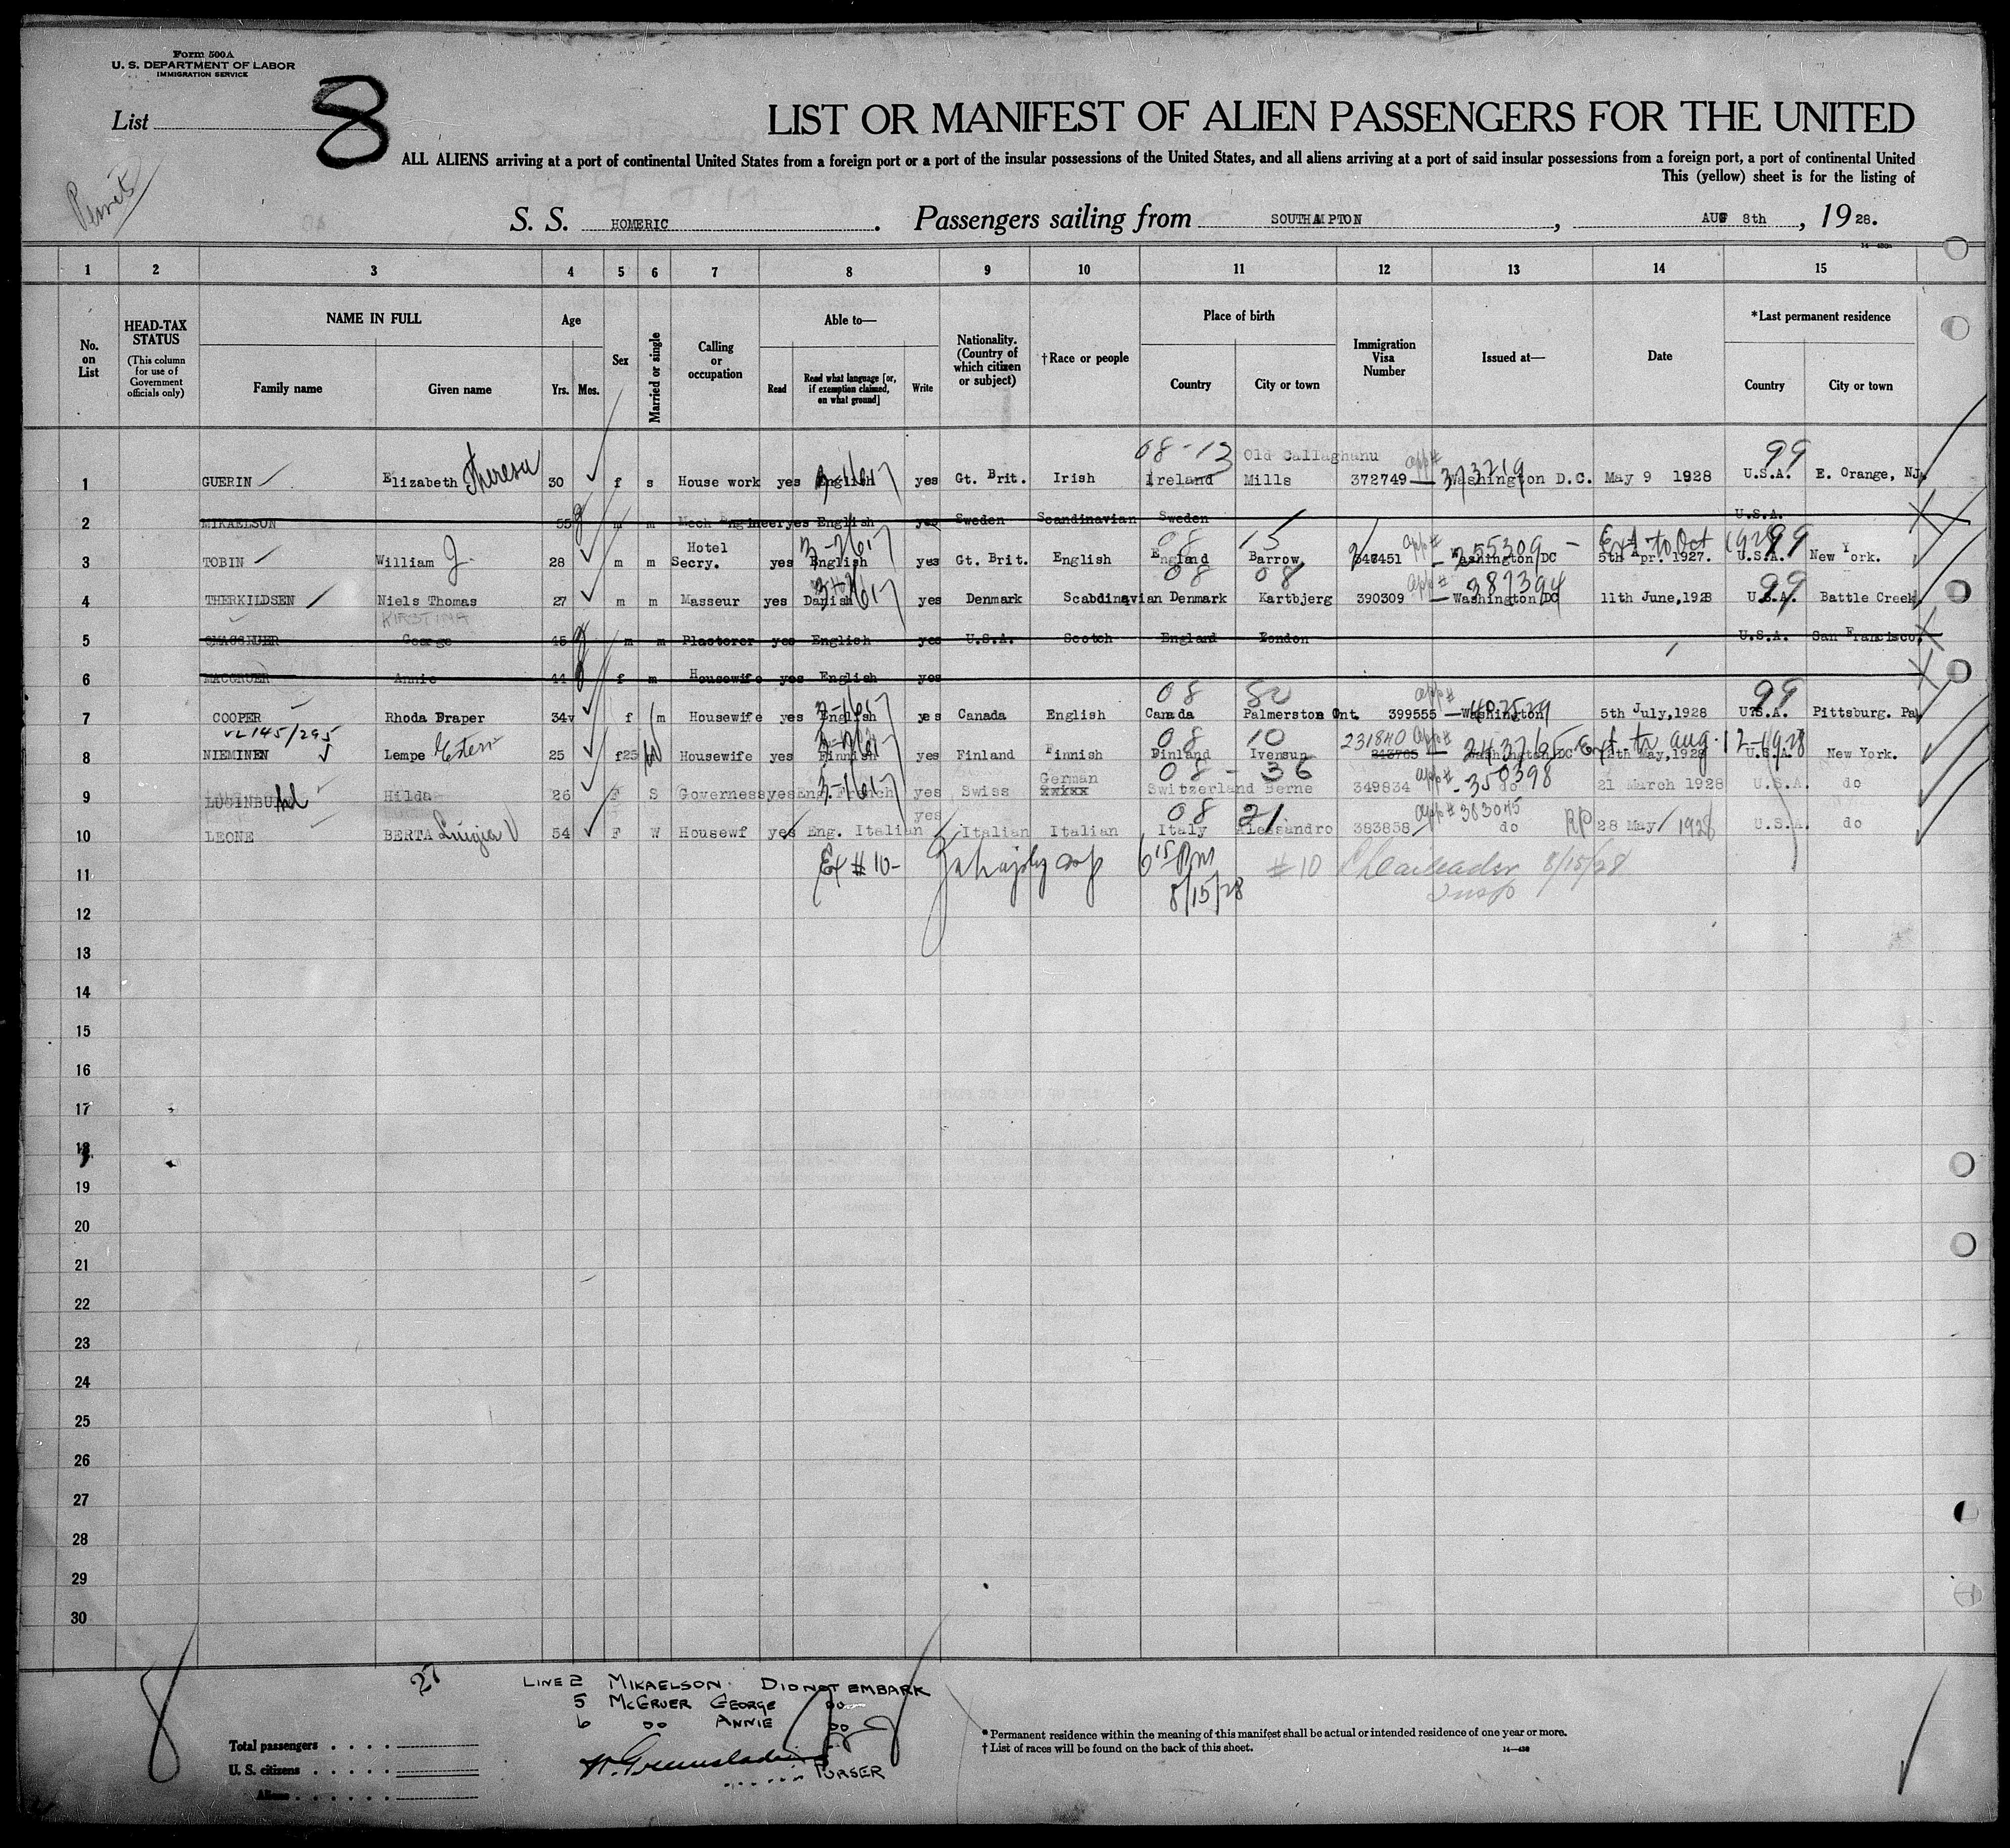 Form 500A
U. S. DEPARTMENT OF LABOR
IMMIGRATION SERVICE
List 8
LIST OR MANIFEST OF ALIEN PASSENGERS FOR THE UNITED
ALL ALIENS arriving at a port of continental United States from a foreign port or a port of the insular possessions of the United States, and all aliens arriving at a port of said insular possessions from a foreign port, a port of continental United
This (yellow) sheet is for the listing of
S. S. HOMERIC. Passengers sailing from SOUTHAMPTON, AUG 8th, 1928.
1 2 3 4 5 6 7 8 9 10 11 12 13 14 15
No. on List
HEAD-TAX STATUS
(This column for use of Government officials only)
NAME IN FULL
Family name Given name
Age
Yrs. Mos.
Sex
Married or single
Calling or occupation
Able to—
Read Read what language [or, if exemption claimed, on what ground] Write
Nationality. (Country of which citizen or subject)
†Race or people
Place of birth
Country City or town
Immigration Visa Number
Issued at—
Date
*Last permanent residence
Country City or town
08-13 Old Callaghanu 99
1 GUERIN Elizabeth Theresa 30 f s House work yes English yes Gt. Brit. Irish Ireland Mills 372749 App# 373719 Washington D.C. May 9 1928 U.S.A. E. Orange, NJ.
2 MIKAELSON 55 m m Mech Engineer yes English yes Sweden Scandinavian Sweden U.S.A.
3 TOBIN William J. 28 m m Hotel Secry. yes English yes Gt. Brit. English England Barrow 347451 App# 255309 Washington DC 5th Apr. 1927. Ext to Oct 1928 U.S.A. New York.
4 THERKILDSEN Niels Thomas 27 m m Masseur yes Danish yes Denmark Scabdinavian Denmark Kartbjerg 390309 App# 387394 Washington DC 11th June, 1928 U.S.A. Battle Creek.
KIRSTINA
5 George 45 m m Plasterer yes English yes U.S.A. Scotch England London U.S.A. San Francisco.
6 MACGRUER Annie 44 f m Housewife yes English yes
08 99
7 COOPER Rhoda Draper 34 f m Housewife yes English yes Canada English Canada Palmerston Ont. 399555 App# Washington 5th July, 1928 U.S.A. Pittsburg. Pa.
VL 145/295
8 NIEMINEN Lempe Esteri 25 f 25 Housewife yes Finnish yes Finland Finnish Finland 08 10 231840 App# 243765 Washington DC May, 1928 Ext to Aug. 12-1928 U.S.A. New York.
08-36
9 LUGINBUHL Hilda 26 F S Governess yes Eng. French yes Swiss German xxxxx Switzerland Berne 349834 App# 350398 do 21 March 1928 U.S.A. do
08 21
10 LEONE BERTA Luigia V 54 F W Housewf yes Eng. Italian yes Italian Italian Italy Alessandro 383838 App# 383045 do RP 28 May 1928 U.S.A. do
11 Ex #10- 6 15 Pm 8/15/28 #10 Insp 8/15/28
12
13
14
15
16
17
18
19
20
21
22
23
24
25
26
27
28
29
30
27
LINE 2 MIKAELSON. DID NOT EMBARK
5 McGRUER GEORGE DO
6 DO ANNIE DO
PURSER
Total passengers
U. S. citizens
Aliens
* Permanent residence within the meaning of this manifest shall be actual or intended residence of one year or more.
† List of races will be found on the back of this sheet.
14—430